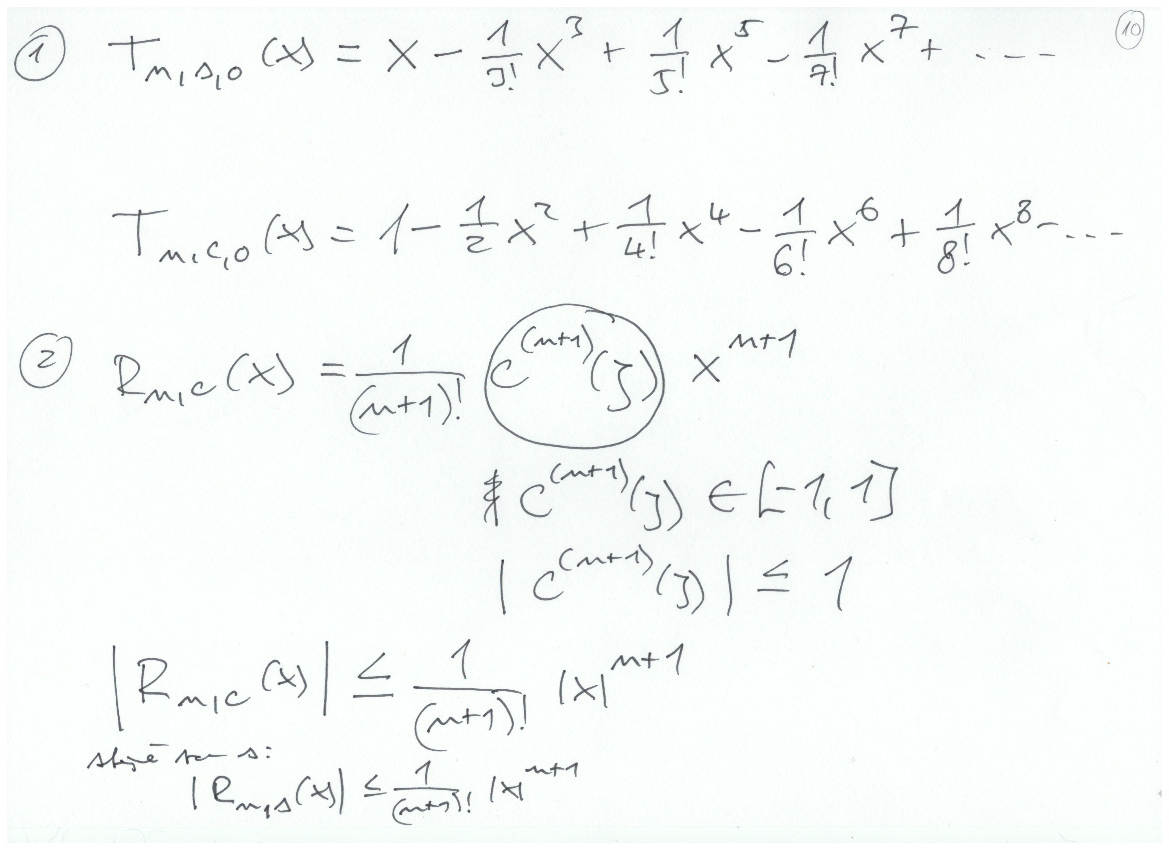 ① T_{n,s,0}(x) = x - \frac{1}{3!} x^3 + \frac{1}{5!} x^5 - \frac{1}{7!} x^7 + ---- ⑩
T_{n,c,0}(x) = 1 - \frac{1}{2} x^2 + \frac{1}{4!} x^4 - \frac{1}{6!} x^6 + \frac{1}{8!} x^8 - ....
② R_{n,c}(x) = \frac{1}{(n+1)!} c^{(n+1)}(ξ) x^{n+1}
c^{(n+1)}(ξ) ∈ [-1, 1]
| c^{(n+1)}(ξ) | ≤ 1
| R_{n,c}(x) | ≤ \frac{1}{(n+1)!} |x|^{n+1}
stejně s:
| R_{n,s}(x) | ≤ \frac{1}{(n+1)!} |x|^{n+1}